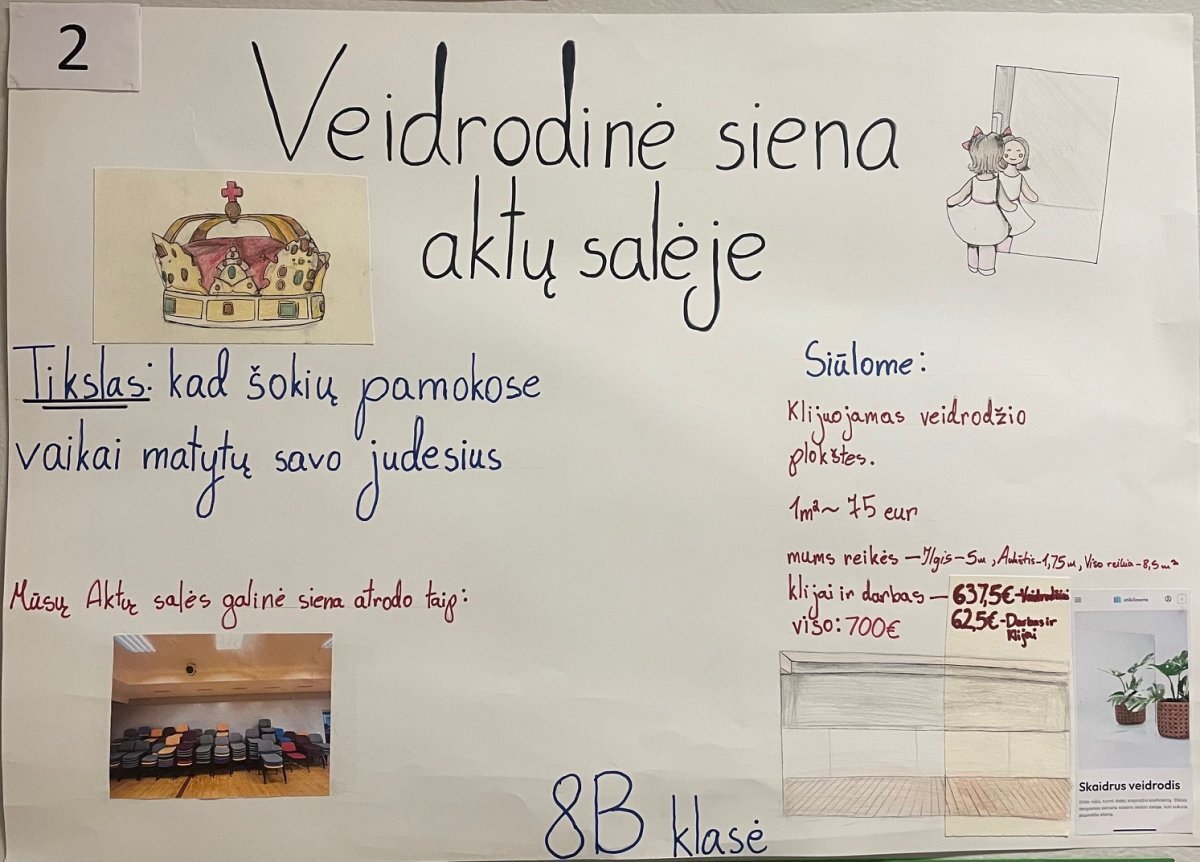 2
Veidrodinė siena
aktų salėje
Tikslas: kad šokių pamokose
vaikai matytų savo judesius
Mūsų Aktų salės galinė siena atrodo taip:
Siūlome:
Klijuojamas veidrodžio
plokštes.
1m²~ 75 eur
mums reikės – Ilgis – 5m, Aukštis – 1,75m, Viso reikia – 8,5m²
klijai ir darbas – 637,5€ – Veidrodžiai
62,5€ – Darbas ir
klijai
viso: 700€
Skaidrus veidrodis
8B klasė